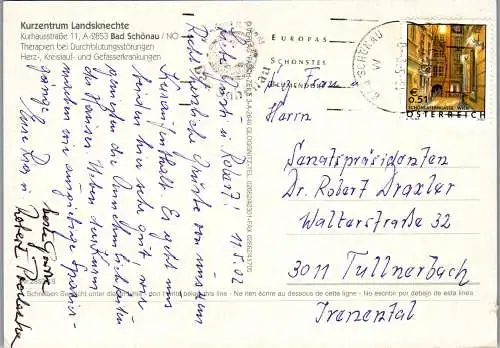 Kurzentrum Landsknechte
Kurhausstraße 11, A-2853 Bad Schönau / NÖ
Therapien bei Durchblutungsstörungen
Herz-, Kreislauf- und Gefässerkrankungen
EUROPAS
SCHÖNSTES
BLUMENDORF
SCHÖNAU
€ 0,51
SCHÖNLATERNGASSE, WIEN
ÖSTERREICH
11.5.02
Liebe und Robert!
Recht herzliche Grüße von unserem
Kuraufenthalt. Es geht uns
beiden hier sehr gut, wir
genießen die Annehmlichkeiten
des Hauses. Neben den Kuren
machen wir ausgiebige Spazier-
gänge.
Frau u.
Herrn
Senatspräsidenten
Dr. Robert Draxler
Walterstraße 32
3011 Tullnerbach
Irenental
Bitte Schreiben Sie nicht unter dieser Linie - Ne rien écrire au dessous de cette ligne - No escribir por debajo de esta línea